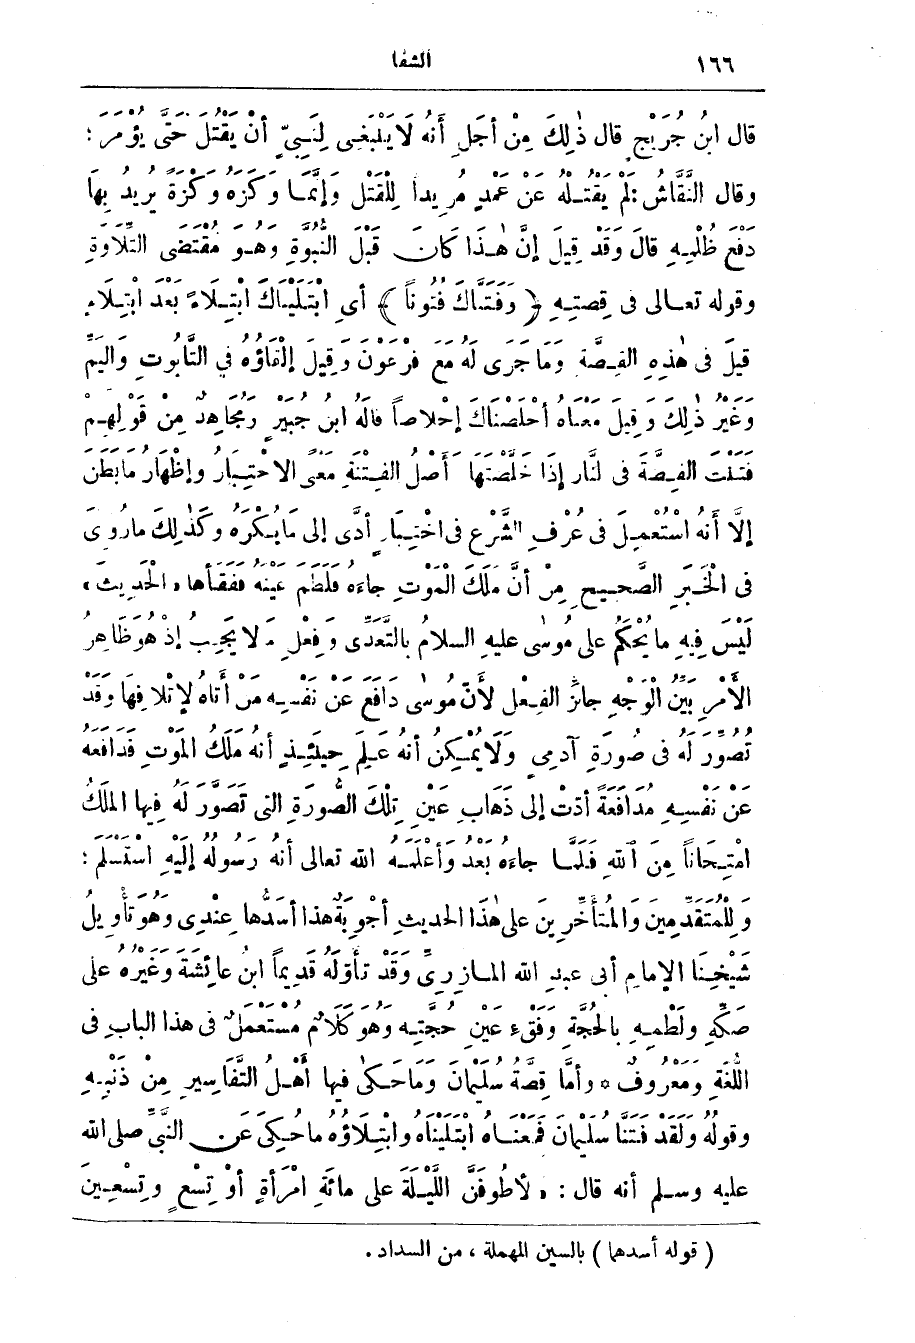 ١٦٦ الشفا
قال ابنُ جُرَيْجٍ قال ذٰلِكَ مِنْ أَجْلِ أَنَّهُ لَا يَنْبَغِى لِنَبِىٍّ أَنْ يَقْتُلَ حَتَّى يُؤْمَرَ ؛
وقال النَّقَّاشُ : لَمْ يَقْتُلْهُ عَنْ عَمْدٍ مُرِيداً لِلْقَتْلِ وَإِنَّمَا وَكَزَهُ وَكْزَةً يُرِيدُ بِهَا
دَفْعَ ظُلْمِهِ قَالَ وَقَدْ قِيلَ إِنَّ هٰذَا كَانَ قَبْلَ النُّبُوَّةِ وَهُوَ مُقْتَضَى التِّلَاوَةِ
وقوله تعالى فى قِصَّتِهِ ﴿ وَفَتَنَّاكَ فُتُوناً ﴾ أَىِ ابْتَلَيْنَاكَ ابْتِلَاءً بَعْدَ ابْتِلَاءٍ
قِيلَ فى هٰذِهِ القِصَّةِ وَمَا جَرَى لَهُ مَعَ فِرْعَوْنَ وَقِيلَ إِلْقَاؤُهُ فِي التَّابُوتِ وَالْيَمِّ
وَغَيْرُ ذٰلِكَ وَقِيلَ مَعْنَاهُ أَخْلَصْنَاكَ إِخْلَاصاً قَالَهُ ابنُ جُبَيْرٍ وَمُجَاهِدٌ مِنْ قَوْلِهِمْ
فَتَنْتُ الفِضَّةَ فى النَّار إِذَا خَلَّصْتَهَا وَأَصْلُ الفِتْنَةِ مَعْنَى الاخْتِبَارُ وَإِظْهَارُ مَا بَطَنَ
إِلَّا أَنَّهُ اسْتُعْمِلَ فى عُرْفِ الشَّرْعِ فى اخْتِبَارٍ أَدَّى إلى مَا يُكْرَهُ وَكَذٰلِكَ مارُوِىَ
فى الْخَبَرِ الصَّحِيحِ مِنْ أَنَّ مَلَكَ الْمَوْتِ جاءَهُ فَلَطَمَ عَيْنَهُ فَفَقَأَها « الْحَدِيثَ »
لَيْسَ فِيهِ ما يُحْكَمُ على مُوسٰى عليهِ السلامُ بالتَّعَدِّى وَفِعْلِ مَا لا يَجِبُ إِذْ هُوَ ظَاهِرُ
الأَمْرِ بَيِّنُ الْوَجْهِ جائزُ الفِعْلِ لأَنَّ مُوسٰى دَافَعَ عَنْ نَفْسِهِ مَنْ أَتَاهُ لِإِتْلَافِهَا وَقَدْ
تُصُوِّرَ لَهُ فى صُورَةِ آدَمِىٍّ وَلَا يُمْكِنُ أنَّهُ عَلِمَ حِينَئِذٍ أَنَّهُ مَلَكُ الْمَوْتِ فَدَافَعَهُ
عَنْ نَفْسِهِ مُدَافَعَةً أَدَّتْ إلى ذَهَابِ عَيْنِ تِلْكَ الصُّورَةِ التى تَصَوَّرَ لَهُ فِيها الملَكُ
امْتِحَاناً مِنَ اللهِ فَلَمَّا جاءَهُ بَعْدُ وَأَعْلَمَهُ الله تعالى أَنَّهُ رَسُولُهُ إِلَيْهِ اسْتَسْلَمَ ؛
وَلِلْمُتَقَدِّمِينَ وَالْمُتَأَخِّرِينَ على هٰذَا الحديثِ أَجْوِبَةٌ هذا أَسَدُّها عِنْدِى وَهُوَ تَأْوِيلُ
شَيْخِنَا الإمامِ أَبى عبدِ الله المازِرِىِّ وَقَدْ تَأَوَّلَهُ قَدِيماً ابنُ عائِشَةَ وَغَيْرُهُ على
صَكِّهِ وَلَطْمِهِ بِالْحُجَّةِ وَفَقْءِ عَيْنِ حُجَّتِهِ وَهُوَ كَلَامٌ مُسْتَعْمَلٌ فى هذا البابِ فى
اللُّغَةِ وَمَعْرُوفٌ * وأَمَّا قِصَّةُ سُلَيْمَانَ وَمَا حَكَى فيها أَهْلُ التَّفَاسِيرِ مِنْ ذَنْبِهِ
وقولُهُ وَلَقَدْ فَتَنَّا سُلَيْمَانَ فَمَعْنَاهُ ابْتَلَيْنَاهُ وابْتِلَاؤُهُ ماحُكِىَ عَنِ النَّبِيِّ صلى الله
عليه وسلم أنه قال : « لأَطُوفَنَّ اللَّيْلَةَ على مائَةِ امْرَأَةٍ أَوْ تِسْعٍ وَتِسْعِينَ
( قوله أسدها ) بالسين المهملة ، من السداد .